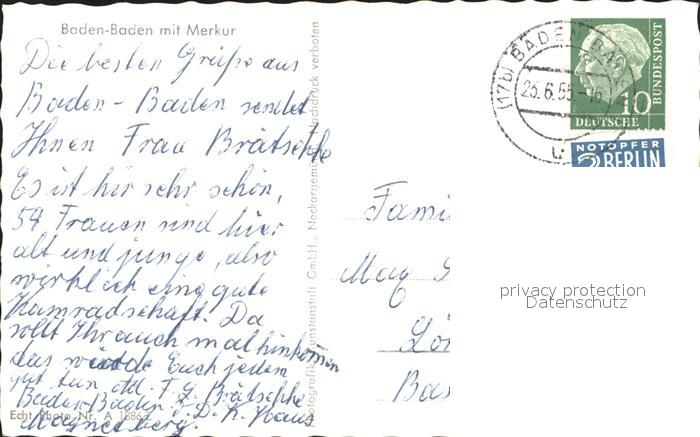 Baden-Baden mit Merkur
Die besten Grüße aus
Baden-Baden sendet
Ihnen Frau Brätschke
Es ist hir sehr schön,
54 Frauen sind hier
alt und junge, also
wirklich eine gute
Kamradschaft. Da
sollt Ihr auch mal hinkommen
das würde Euch jeden
gut tun
Baden-Baden
Echt Photo Nr. A 1886
Nachdruck verboten
(17b) BADEN-BA
23.6.55-16
DEUTSCHE
BUNDESPOST
10
NOTOPFER
2 BERLIN
Fami
Max
Lör
Bas
privacy protection
Datenschutz